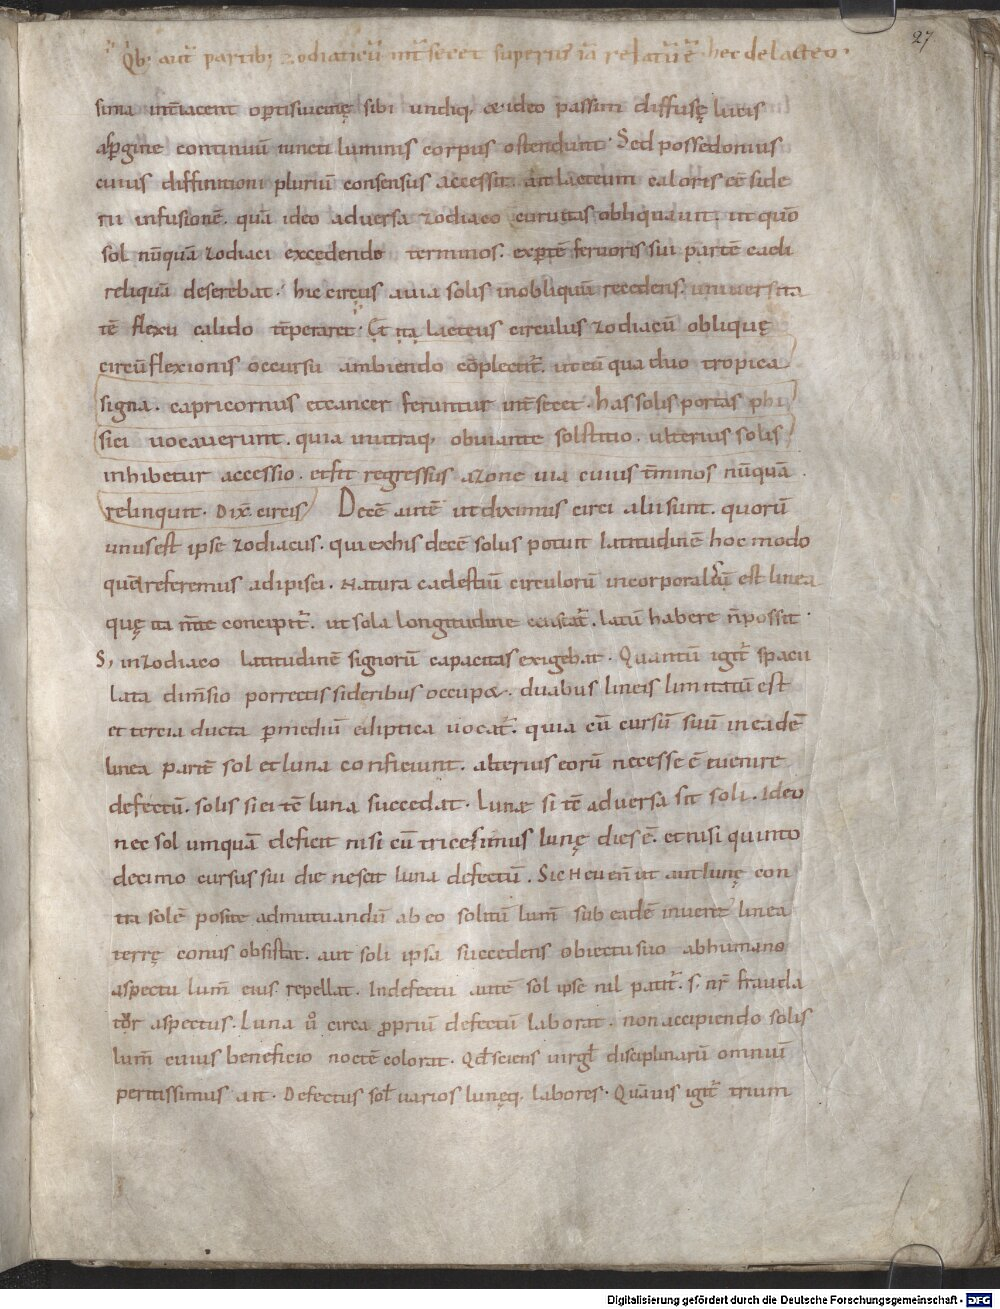 Qb; aut̄ partib; zodiacū int̄secet superius iā relatū ē hec de lacteo.
27.
sima int̄iacent op̄tisiucinę sibi undiq, & ideo passim diffusę lucis
asp̄gine continuū iuncti luminis corpus ostendunt. Sed possedonius
cuius diffinitioni pluriū consensus accessit. ait lacteum caloris eē side
rii infusionē. quā ideo adversa zodiaco curuitas obliquavit. ut quō
sol nūquā zodiaci excedendo terminos. exp̄tē fervoris sui partē caeli
reliquā deserebat. hic circus avia solis inobliquū recedens. universita
tē flexu calido tēperaret. Et ita lacteus circulus zodiacū obliquę
circūflexionis occursu ambiendo cōplectit̄. ut eū qua duo tropica
signa. capricornus etcancer feruntur int̄secet. has solis portas phi
sici vocaverunt. quia inutraq, obviante solstitio. ulterius solis
inhibetur accessio. etfit regressus azone via cuius t̄minos nūquā
relinquit. Dixē circis Decē autē ut diximus circi alii sunt. quorū
unus est ipse zodiacus. qui exhis decē solus potuit latitudinē hoc modo
quē referemus adipisci. Natura caelestiū circulorū incorporalis est linea
quę ita m̄te concipit̄. ut sola longitudine censeat̄. latū habere n̄ possit.
S, in zodiaco latitudinē signorū capacitas exigebat. Quantū igit̄ spacii
lata dim̄sio porrectis sideribus occupat. duabus lineis limitatū est
et tercia ducta p̄mediū ecliptica vocat̄. quia cū cursū suū ineadē
linea paritē sol et luna conficiunt. alterius eorū necesse ē evenire
defectū. solis si ei tē luna succedat. Lunae si tē adversa sit soli. Ideo
nec sol umquā deficit nisi cū tricesimus lunę dies ē. et nisi quinto
decimo cursus sui die nescit luna defectū. Sic Hevenit ut aut lunę con
tra solē posite admutuandū ab eo solitū lum̄ sub eadē invent̄ linea
terrę conus obsistat. aut soli ipsa succedens obiectu suo abhumano
aspectu lum̄ eius repellat. Indefectu autē sol ipse nil patit̄. s, nr̄ frauda
tur aspectus. Luna ů circa ꝓpriū defectū laborat. non accipiendo solis
lum̄ cuius beneficio noctē colorat. Qd sciens virgl̄ disciplinarū omniū
peritissimus ait. Defectus sol̄ varios lunęq, labores. Quāvis igit̄ trium
Digitalisierung gefördert durch die Deutsche Forschungsgemeinschaft - DFG